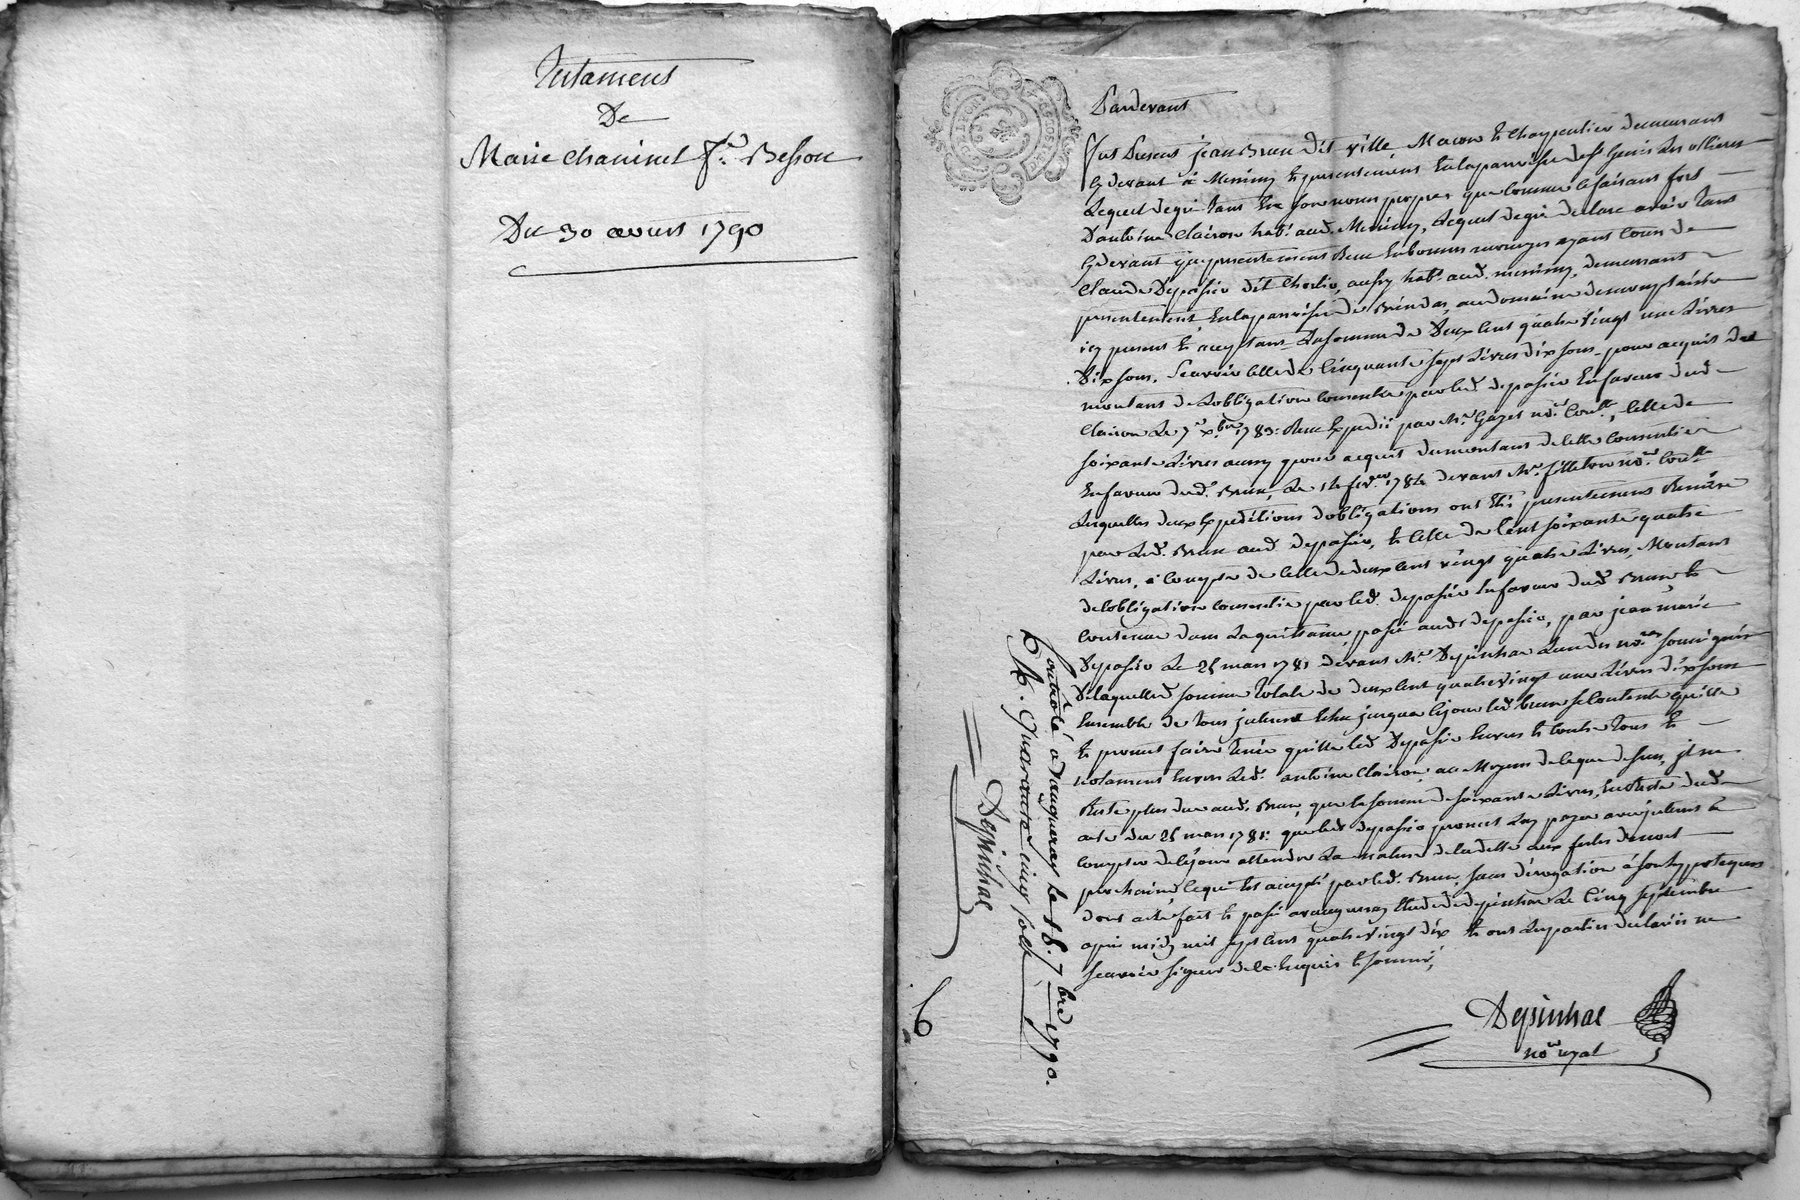 Testament
De
Marie chavinel f.e Besson
Du 30 aoust 1790
Pardevant
fut Present jean Brun dit ville Macon & Charpentier demeurant
cy devant à Messimy & presentement En la parroisse de st Genis les ollieres
Lequel de gré tant En son nom propre que comme se faisant fort
D'antoine Clairon habt. aud. Messimy, Lequel de gré declare avoir tant
cy devant que presentement Recu En bonnes especes ayant cours de
Claude Depassio dit Charlio, aussy habt. aud. messimy, demeurant
presentement En la parroisse de Brindas, au domaine
icy present & acceptant La somme de Deux Cent quatre vingt une Livres
Dix sous, Scavoir Celle de Cinquante sept Livres dix sous pour acquit du
montant de L'obligation consentie par led. depassio En faveur dud.
Clairon Le 7e xbre 1783. Recu & Expedié par Me Gazet nore. Celle de
soixante Livres aussy pour acquit du montant de Celle consentie
En faveur dud. Brun, Le 14 fevrer 1784 devant Me. filleton nore.
Lesquelles deux Expeditions d'obligations ont Eté presentement Remises
par Led. Brun aud. depassio, & Celle de Cent soixante quatre
Livres, à Compte de Celle de deux Cent vingt quatre Livres, Montant
de l'obligation consentie par led. depassio En faveur dud. Brun &
contenue dans La quittance, passée aud. depassio, par jean marie
Depassio Le 25 mars 1781 devant Me. Depinhac L'un des nores. soussignés
De laquelle somme totale de deux Cent quatre vingt une Livres dix sous
Ensemble de tous interest Echu jusqu'a ce jour led. brun se contente quitte
& promet faire tenir quitte led. Depassio Envers & contre tous &
notamment Envers Led. antoine Clairon. au Moyen de ce que dessus, il ne
Reste plus du aud. Brun, que la somme de soixante Livres, En Reste dud.
acte du 25 mars 1781. que led. depassio promet Luy payer avec interest à
Compter de ce jour
prochaine, Ce qui Est accepté par led. Brun, sans derogation à son hypoteques
dont acte fait & passé a vaugneray Etude de depinhac Le Cinq septembre
apres midy mil sept Cent quatre vingt dix & ont Les parties declarées ne
scavoir signer de ce Enquis & sommé,
Depinhac
nore royal
Controlé à vaugneray le 18. 7bre 1790.
Quarante cinq sols
Depinhac
6